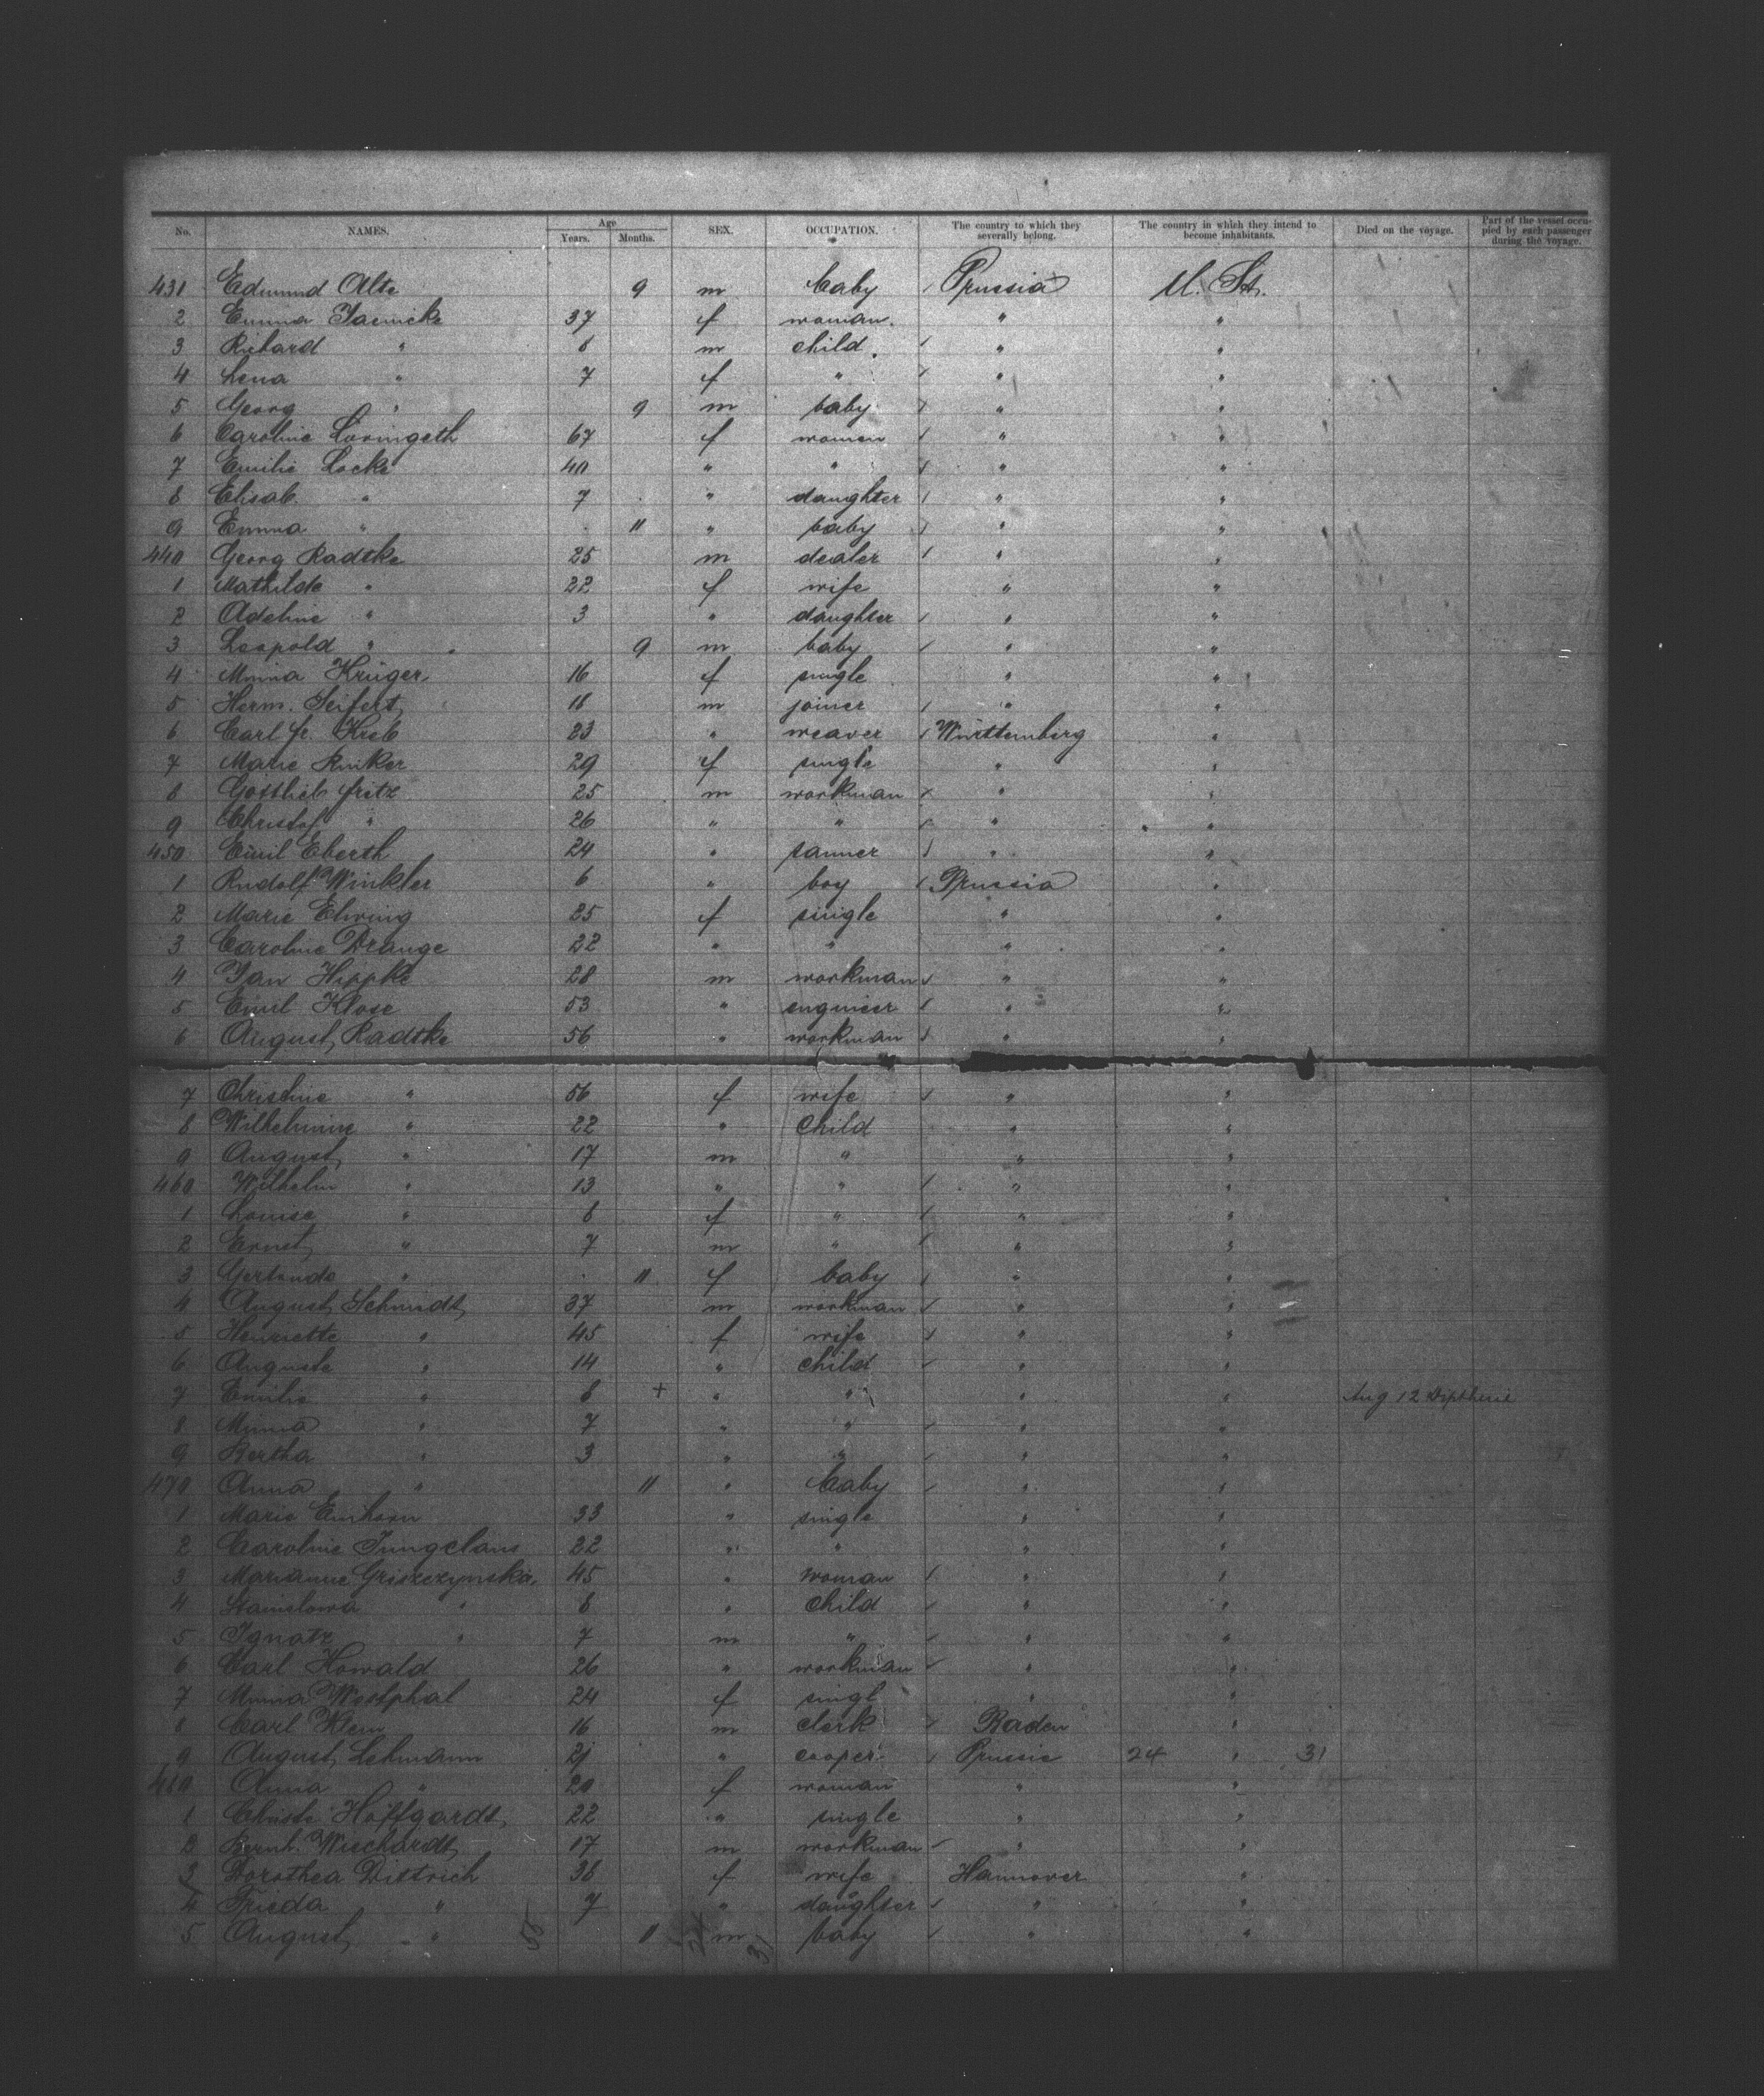 No. NAMES. Age Years. Months. SEX. OCCUPATION. The country to which they severally belong. The country in which they intend to become inhabitants. Died on the voyage. Part of the vessel occupied by each passenger during the voyage.
431 Edmund Alte 9 m baby Prussia U. St.
2 Emma Jaenicke 37 f woman " "
3 Richard " 8 m child " "
4 Lena " 7 f " " "
5 Georg " 9 m baby " "
6 Caroline 67 f woman " "
7 Emilie Locke 40 " " " "
8 Elisab. " 7 " daughter " "
9 Emma " 11 " baby " "
440 Georg Radtke 25 m dealer " "
1 Mathilde " 22 f wife " "
2 Adeline " 3 " daughter " "
3 Leopold " 9 m baby " "
4 Minna Krüger 16 f single " "
5 Herm. Seifert 18 m joiner " "
6 Carl Fr. Kreb 23 " weaver Württemberg "
7 Marie 29 f single " "
8 Gottlieb Fritz 25 m workman " "
9 Christof " 26 " " " "
450 Emil Eberth 24 " tanner " "
1 Rudolf Winkler 6 " boy Prussia "
2 Marie Ehving 25 f single " "
3 Caroline Drange 22 " " " "
4 Jan Hippke 28 m workman " "
5 Emil Klose 53 " engineer " "
6 August Radtke 56 " workman " "
7 Christine " 56 f wife " "
8 Wilhelmine " 22 " child " "
9 August " 17 m " " "
460 Wilhelm " 13 " " " "
1 Louise " 8 f " " "
2 Ernst " 7 m " " "
3 " 11 f baby " "
4 August Schmidt 37 m workman " "
5 Henriette " 45 f wife " "
6 Auguste " 14 " child " "
7 Emilie " 8 + " " " " Aug 12 Diptherie
8 Minna " 7 " " " "
9 Bertha " 3 " " " "
470 Anna " 11 " baby " "
1 Marie Einhorn 33 " single " "
2 Caroline Jungclaus 22 " " " "
3 Marianne Griszczynska 45 " woman " "
4 Stanislowa " 8 " child " "
5 Ignatz " 7 m " " "
6 Carl Howald 26 " workman " "
7 Minna Westphal 24 f singl " "
8 Carl Klein 16 m clerk Baden "
9 August Lehmann " cooper Prussia 24 " 31
480 Anna " 20 f woman " "
1 Christe Hoffgardt 22 " single " "
2 Bernh. Wiechardt 17 m workman " "
3 Dorothea Dittrich 38 f wife Hannover "
4 Frieda " 7 " daughter " "
5 August " 55 11 24 m 31 baby " "